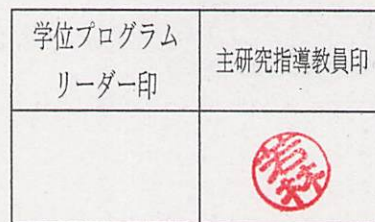 学位プログラム
リーダー印
主研究指導教員印